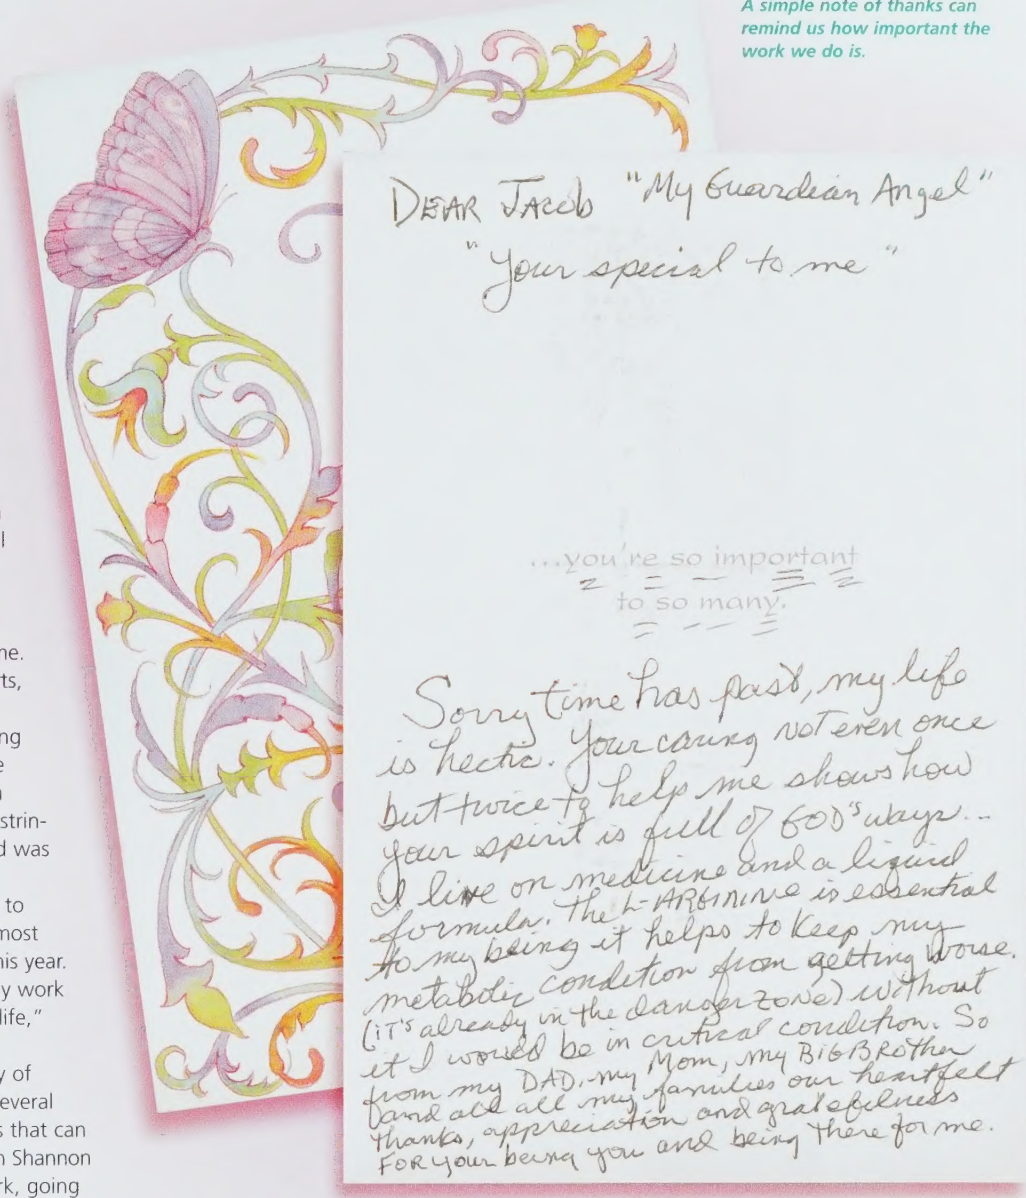 A simple note of thanks can
remind us how important the
work we do is.
DEAR JACOB "My Guardian Angel"
"Your special to me"
...you're so important
to so many.
Sorry time has past, my life
is hectic. Your caring not even once
but twice to help me shows how
your spirit is full of GOD'S ways...
I live on medicine and a liquid
formula. The L-ARGININE is essential
to my being it helps to keep my
metabolic condition from getting worse.
(it's already in the danger zone) without
it I would be in critical condition. So
from my DAD, my Mom, my BIG BROTHER
and all all my families our heartfelt
thanks, appreciation and gratefulness
FOR your being you and being there for me.
ne.
rts,
ng
strin-
d was
to
most
his year.
y work
life,"
y of
everal
s that can
n Shannon
rk, going